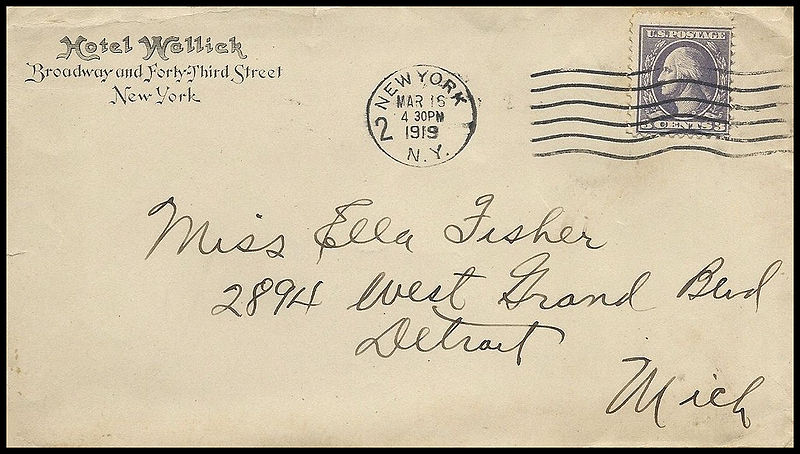 Hotel Wallick
Broadway and Forty-Third Street
New York
NEW YORK
MAR 16
4 30PM
1919
N.Y.
2
U.S. POSTAGE
3 CENTS 3
Miss Ella Fisher
2894 West Grand Blvd
Detroit
Mich